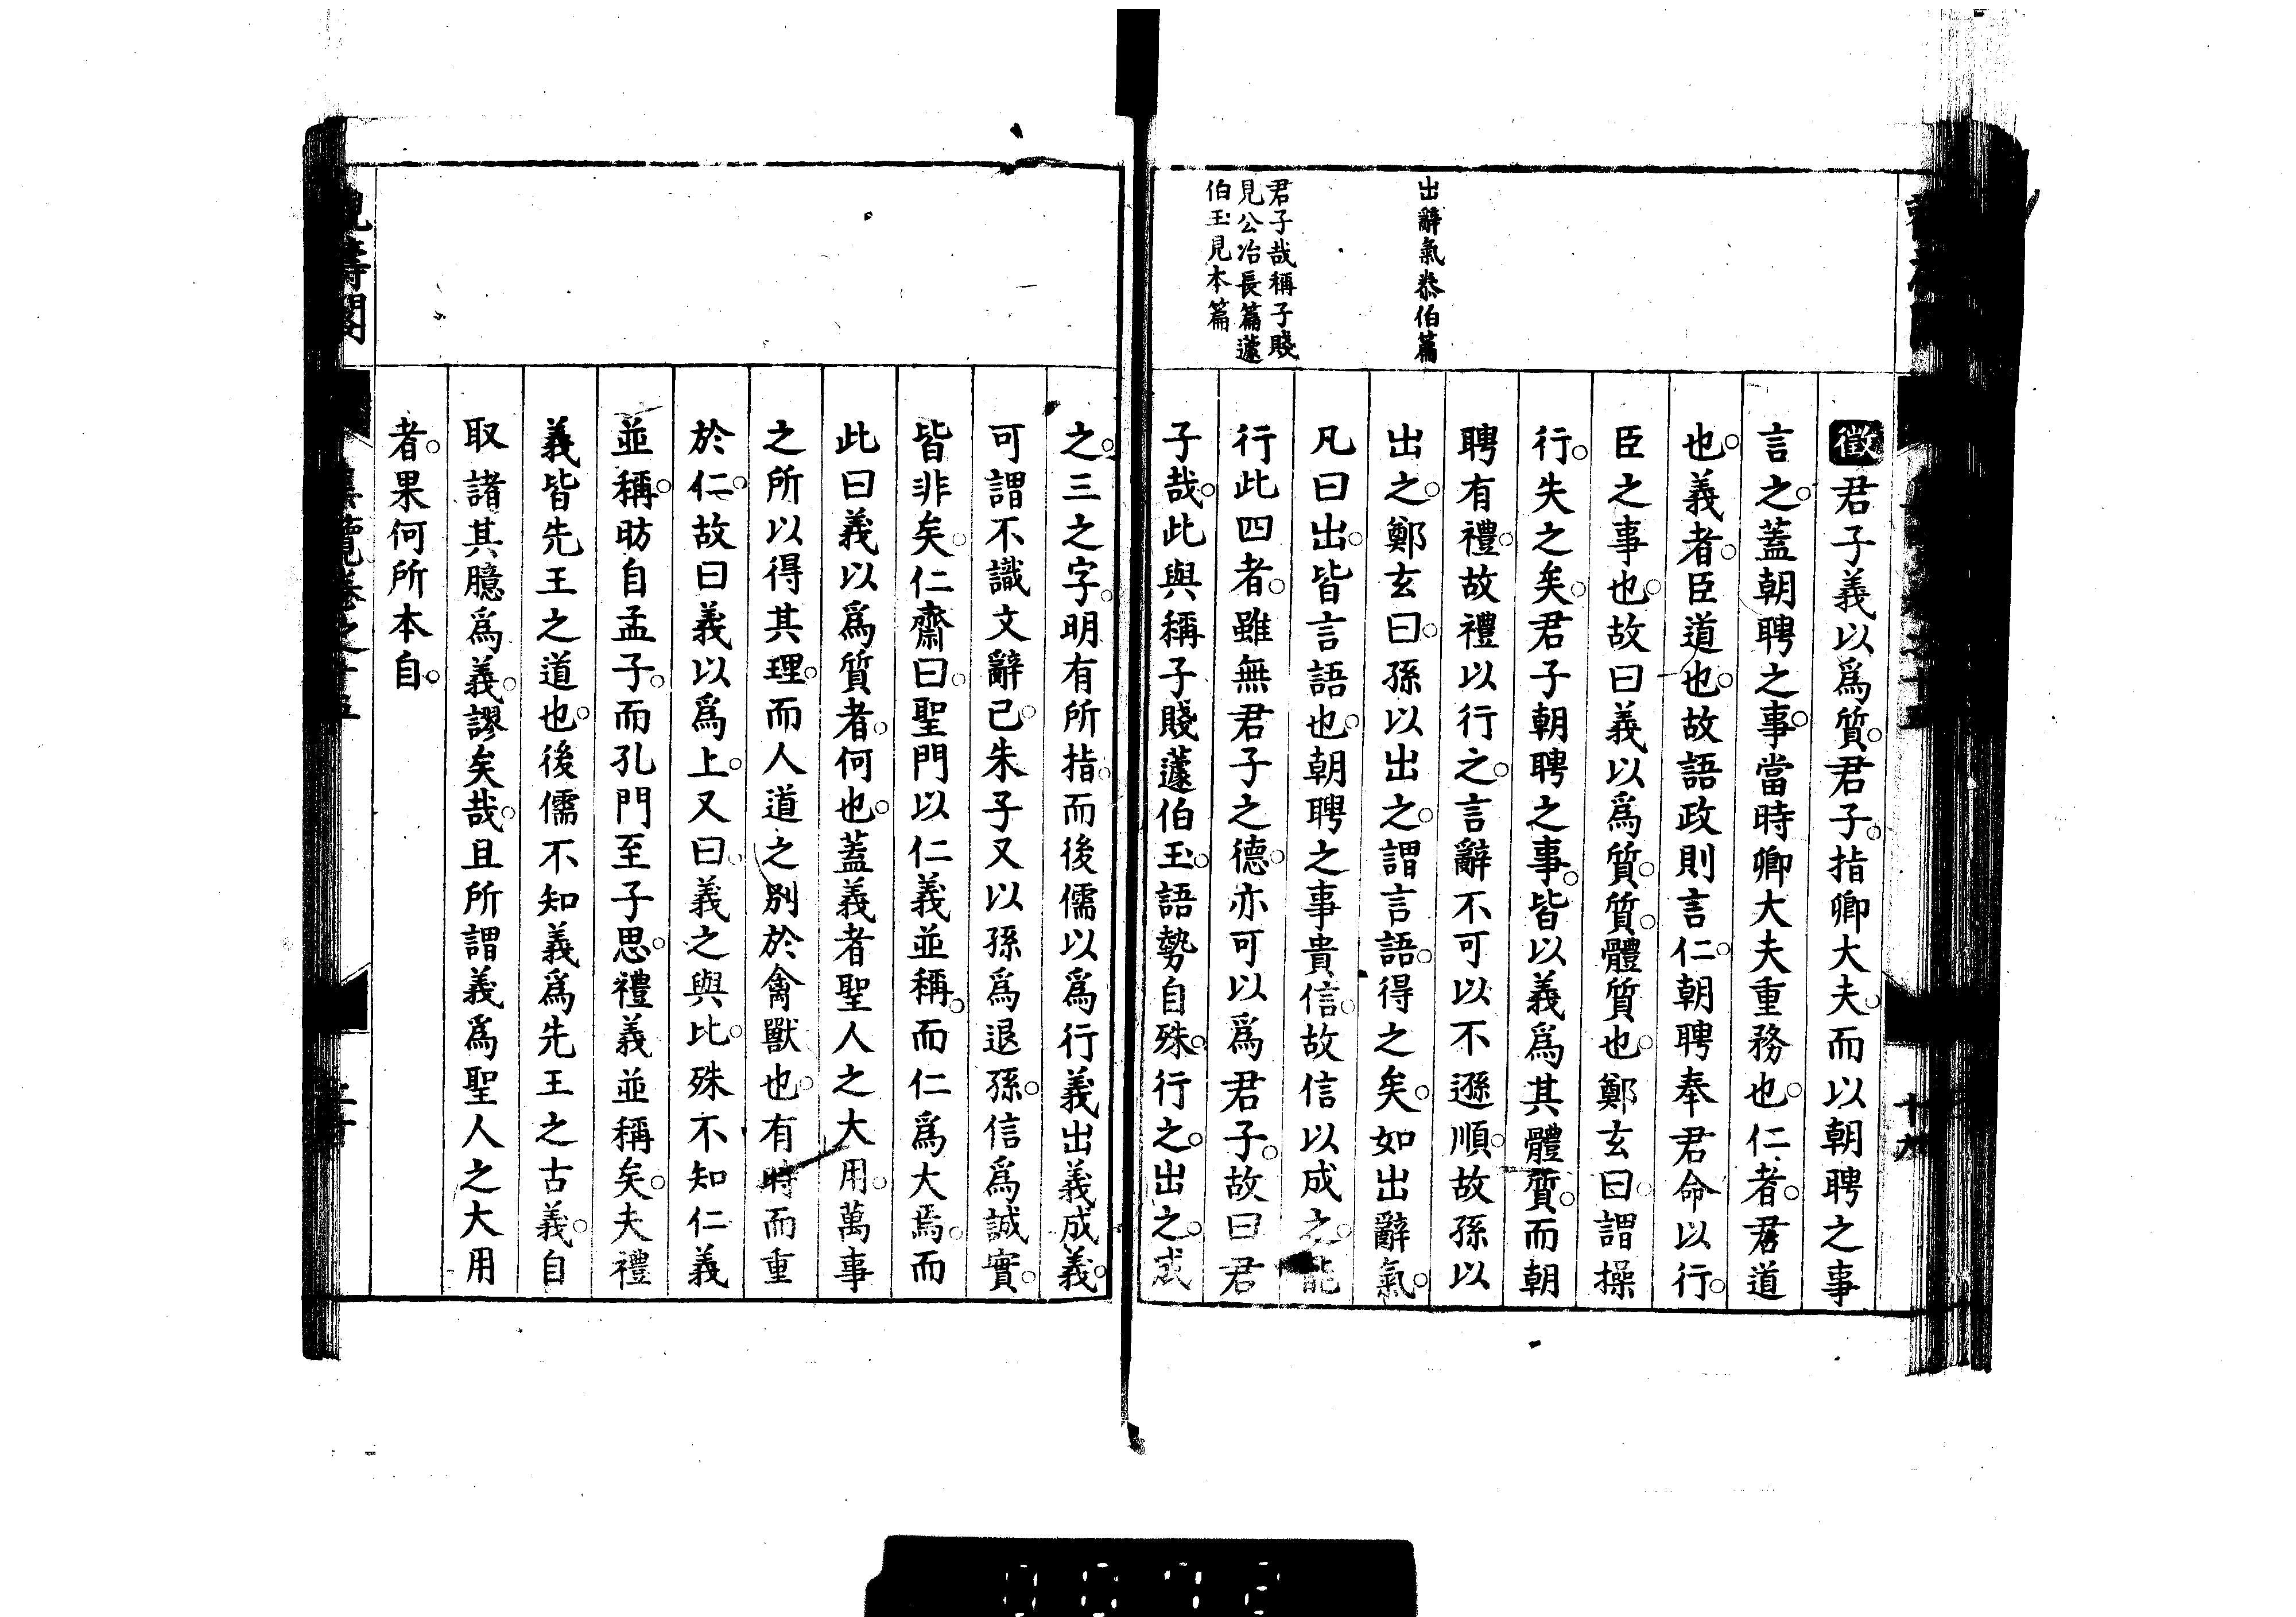 出辭氣泰伯篇
君子哉稱子賤
見公冶長篇蘧
伯玉見本篇
徵君子義以爲質。君子。指卿大夫。而以朝聘之事
言之。蓋朝聘之事。當時卿大夫重務也。仁者。君道
也。義者。臣道也。故語政則言仁。朝聘奉君命以行。
臣之事也。故曰義以爲質。質。體質也。鄭玄曰。謂操
行。失之矣。君子朝聘之事。皆以義爲其體質。而朝
聘有禮。故禮以行之。言辭不可以不遜順。故孫以
出之。鄭玄曰。孫以出之。謂言語。得之矣。如出辭氣。
凡曰出。皆言語也。朝聘之事貴信。故信以成之。能
行此四者。雖無君子之德。亦可以爲君子。故曰君
子哉。此與稱子賤蘧伯玉。語勢自殊。行之。出之。成
之。三之字。明有所指。而後儒以爲行義出義成義。
可謂不識文辭已。朱子又以孫爲退孫。信爲誠實。
皆非矣。仁齋曰。聖門以仁義並稱。而仁爲大焉。而
此曰義以爲質者。何也。蓋義者聖人之大用。萬事
之所以得其理。而人道之別於禽獸也。有時而重
於仁。故曰義以爲上。又曰。義之與比。殊不知仁義
並稱。昉自孟子。而孔門至子思。禮義並稱矣。夫禮
義皆先王之道也。後儒不知義爲先王之古義。自
取諸其臆爲義。謬矣哉。且所謂義爲聖人之大用
者。果何所本自。
覽卷之十五
十九